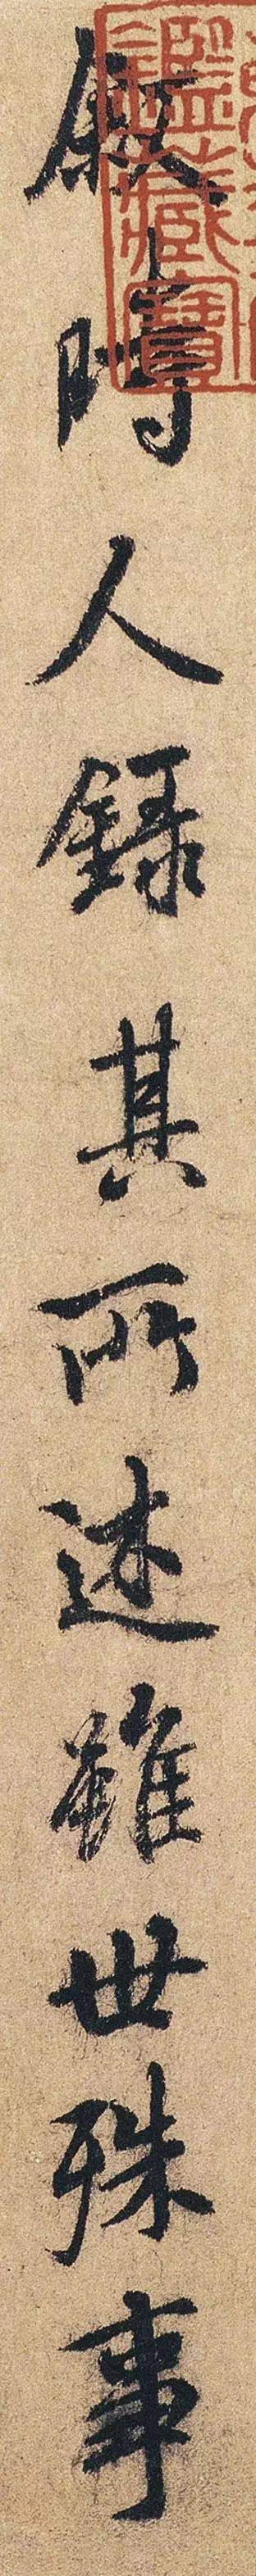 敘時人錄其所述雖世殊事
鑑藏寶